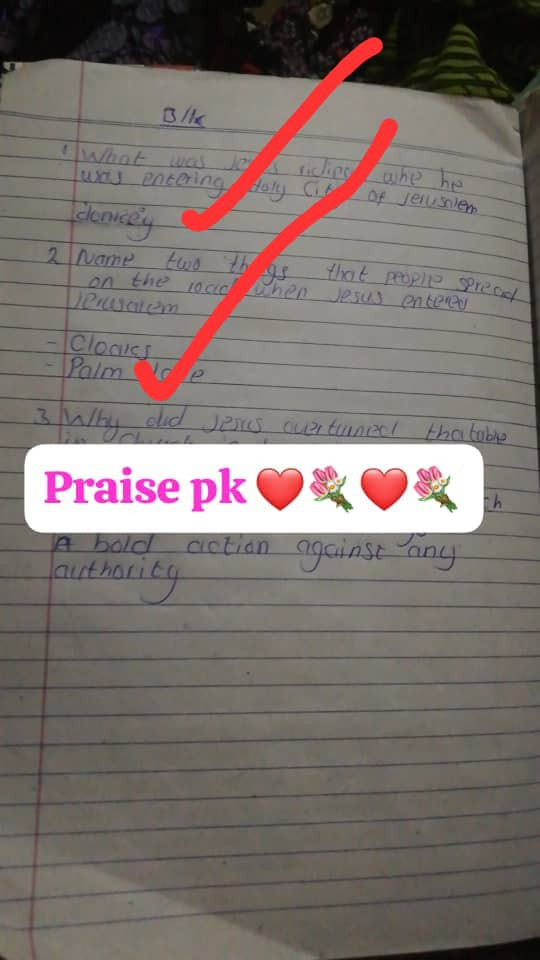 B/k
1 What was Jesus riding whe he
was entering Holy City of Jerusalem
donkey
2 Name two things that people spread
on the road when Jesus entered
Jerusalem
- Cloaks
- Palm
3 Why did Jesus overturned that table
in Church
Praise pk ❤️💐❤️💐
A bold action against any
authority